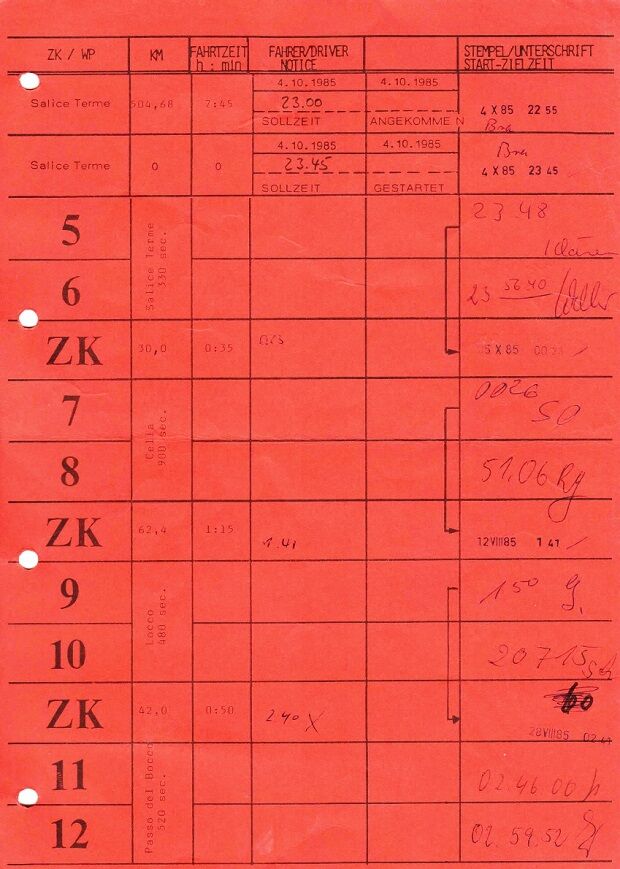 ZK / WP KM FAHRTZEIT h : min FAHRER/DRIVER NOTICE STEMPEL/UNTERSCHRIFT START-ZIELZEIT
4.10.1985 4.10.1985
Salice Terme 504,68 7:45 23.00 4 X 85 22 55
SOLLZEIT ANGEKOMMEN
4.10.1985 4.10.1985
Salice Terme 0 0 23.45 4 X 85 23 45
SOLLZEIT GESTARTET
5 23.48
Salice Terme 330 sec.
6 23 56.40
ZK 30,0 0:35 X 85
7 0026 50
Cella 900 sec.
8 51.06
ZK 62,4 1:15 1.41 12 VIII 85 1 41
9 1 50
Locco 480 sec.
10 20715
ZK 42,0 0:50 2.40 X 28 VIII 85
11 02.46 00
Passo del Bocco 520 sec.
12 02.59.52